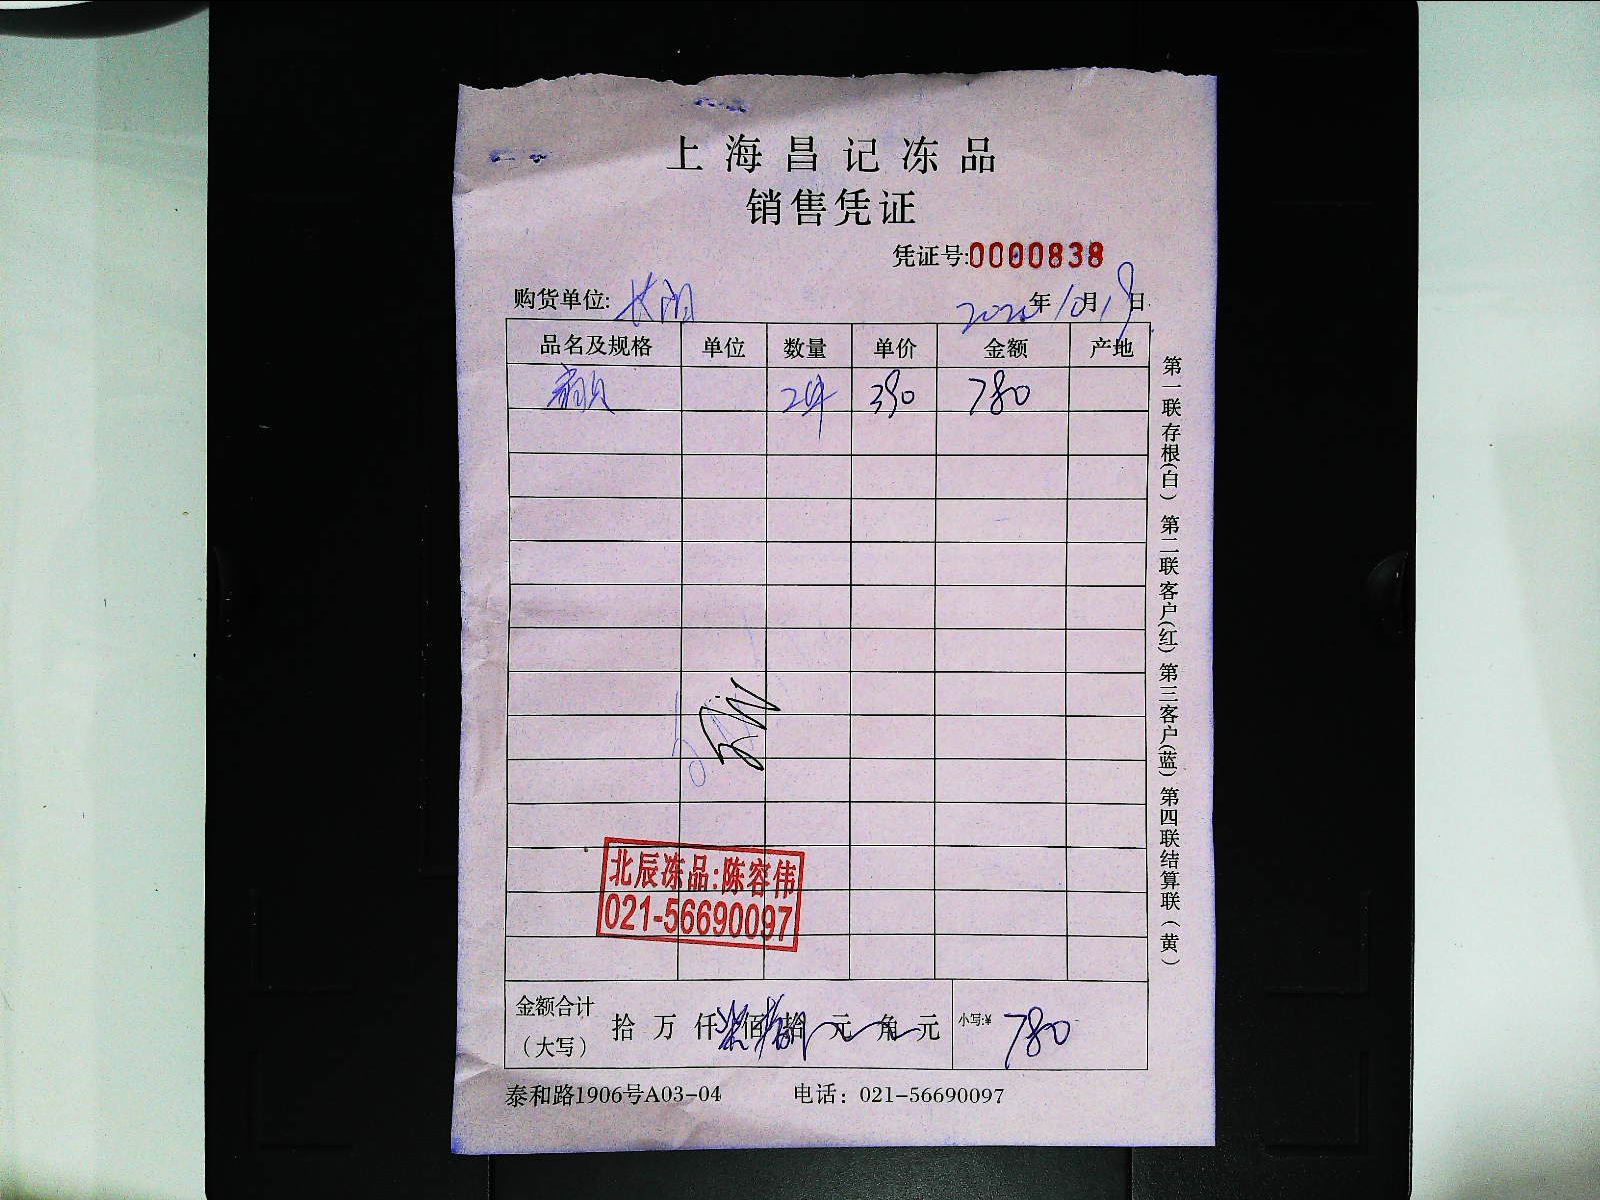 上海昌记冻品
销售凭证
凭证号:0000838
购货单位:
年10月19日
品名及规格 单位 数量 单价 金额 产地
2件 390 780
北辰冻品:陈容伟
021-56690097
金额合计
(大写)
拾 万 仟 柒佰捌拾 元 角 元 小写:¥ 780
泰和路1906号A03-04 电话: 021-56690097
第一联存根(白) 第二联客户(红) 第三客户(蓝) 第四联结算联(黄)